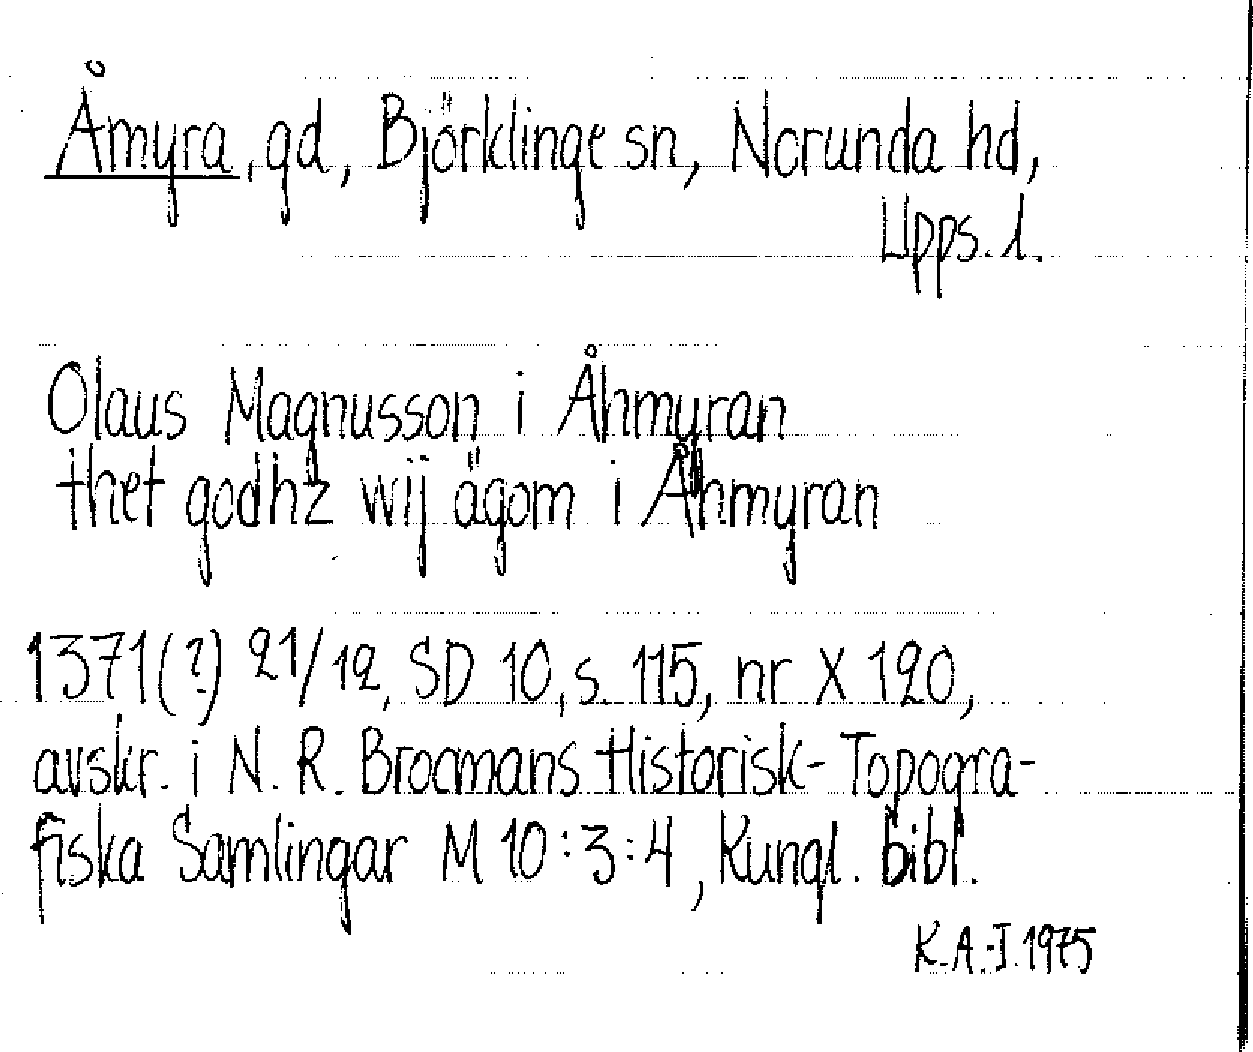 Åmyra, gd, Björklinge sn, Norunda hd,
Upps. l.
Olaus Magnusson i Åhmyran
thet godhz wij ägom i Åhmyran
1371(?) 21/12, SD 10, s. 115, nr X 120,
avskr. i N. R. Brocmans Historisk-Topogra-
fiska Samlingar M 10:3:4, Kungl. bibl.
K.A.-I. 1975